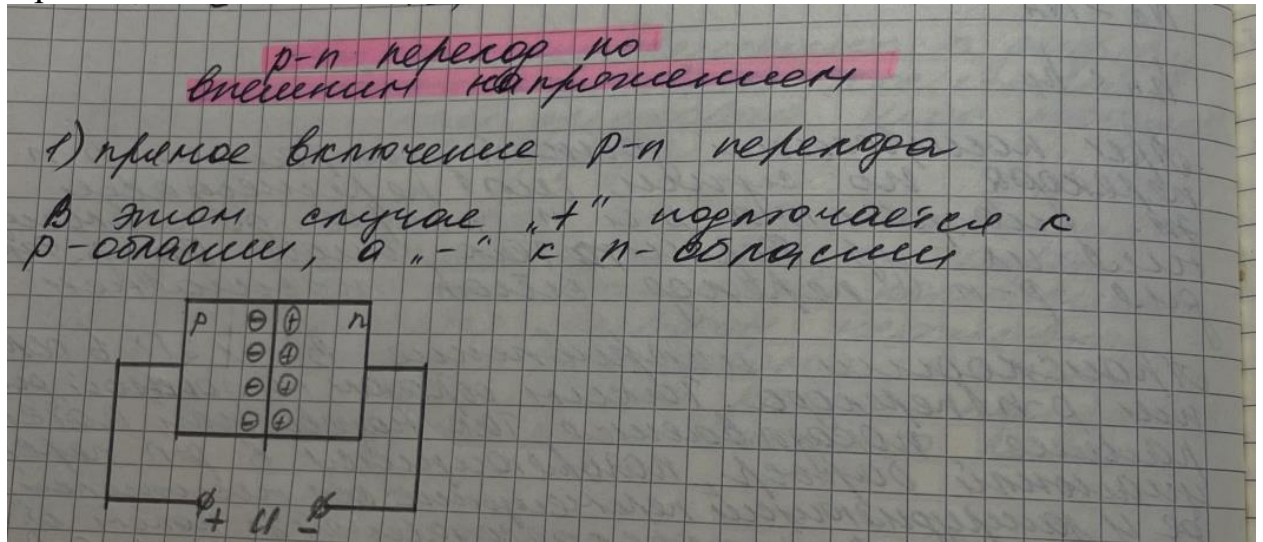 p-n переход по
внешним напряжением
1) прямое включение p-n перехода
В этом случае „+" подлючается к
p-области, а „-" к n-области
p ⊖ ⊕ n
⊖ ⊕
⊖ ⊕
⊖ ⊕
+ U -